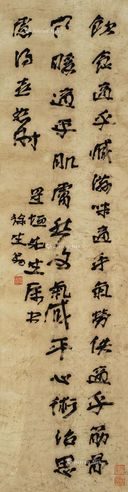 飲食適乎臧滋味適乎氣勞佚適乎筋骨
寒暖適乎肌膚然後氣臧平心術治思
慮得喜怒時
星垣先生屬書
徐生翁